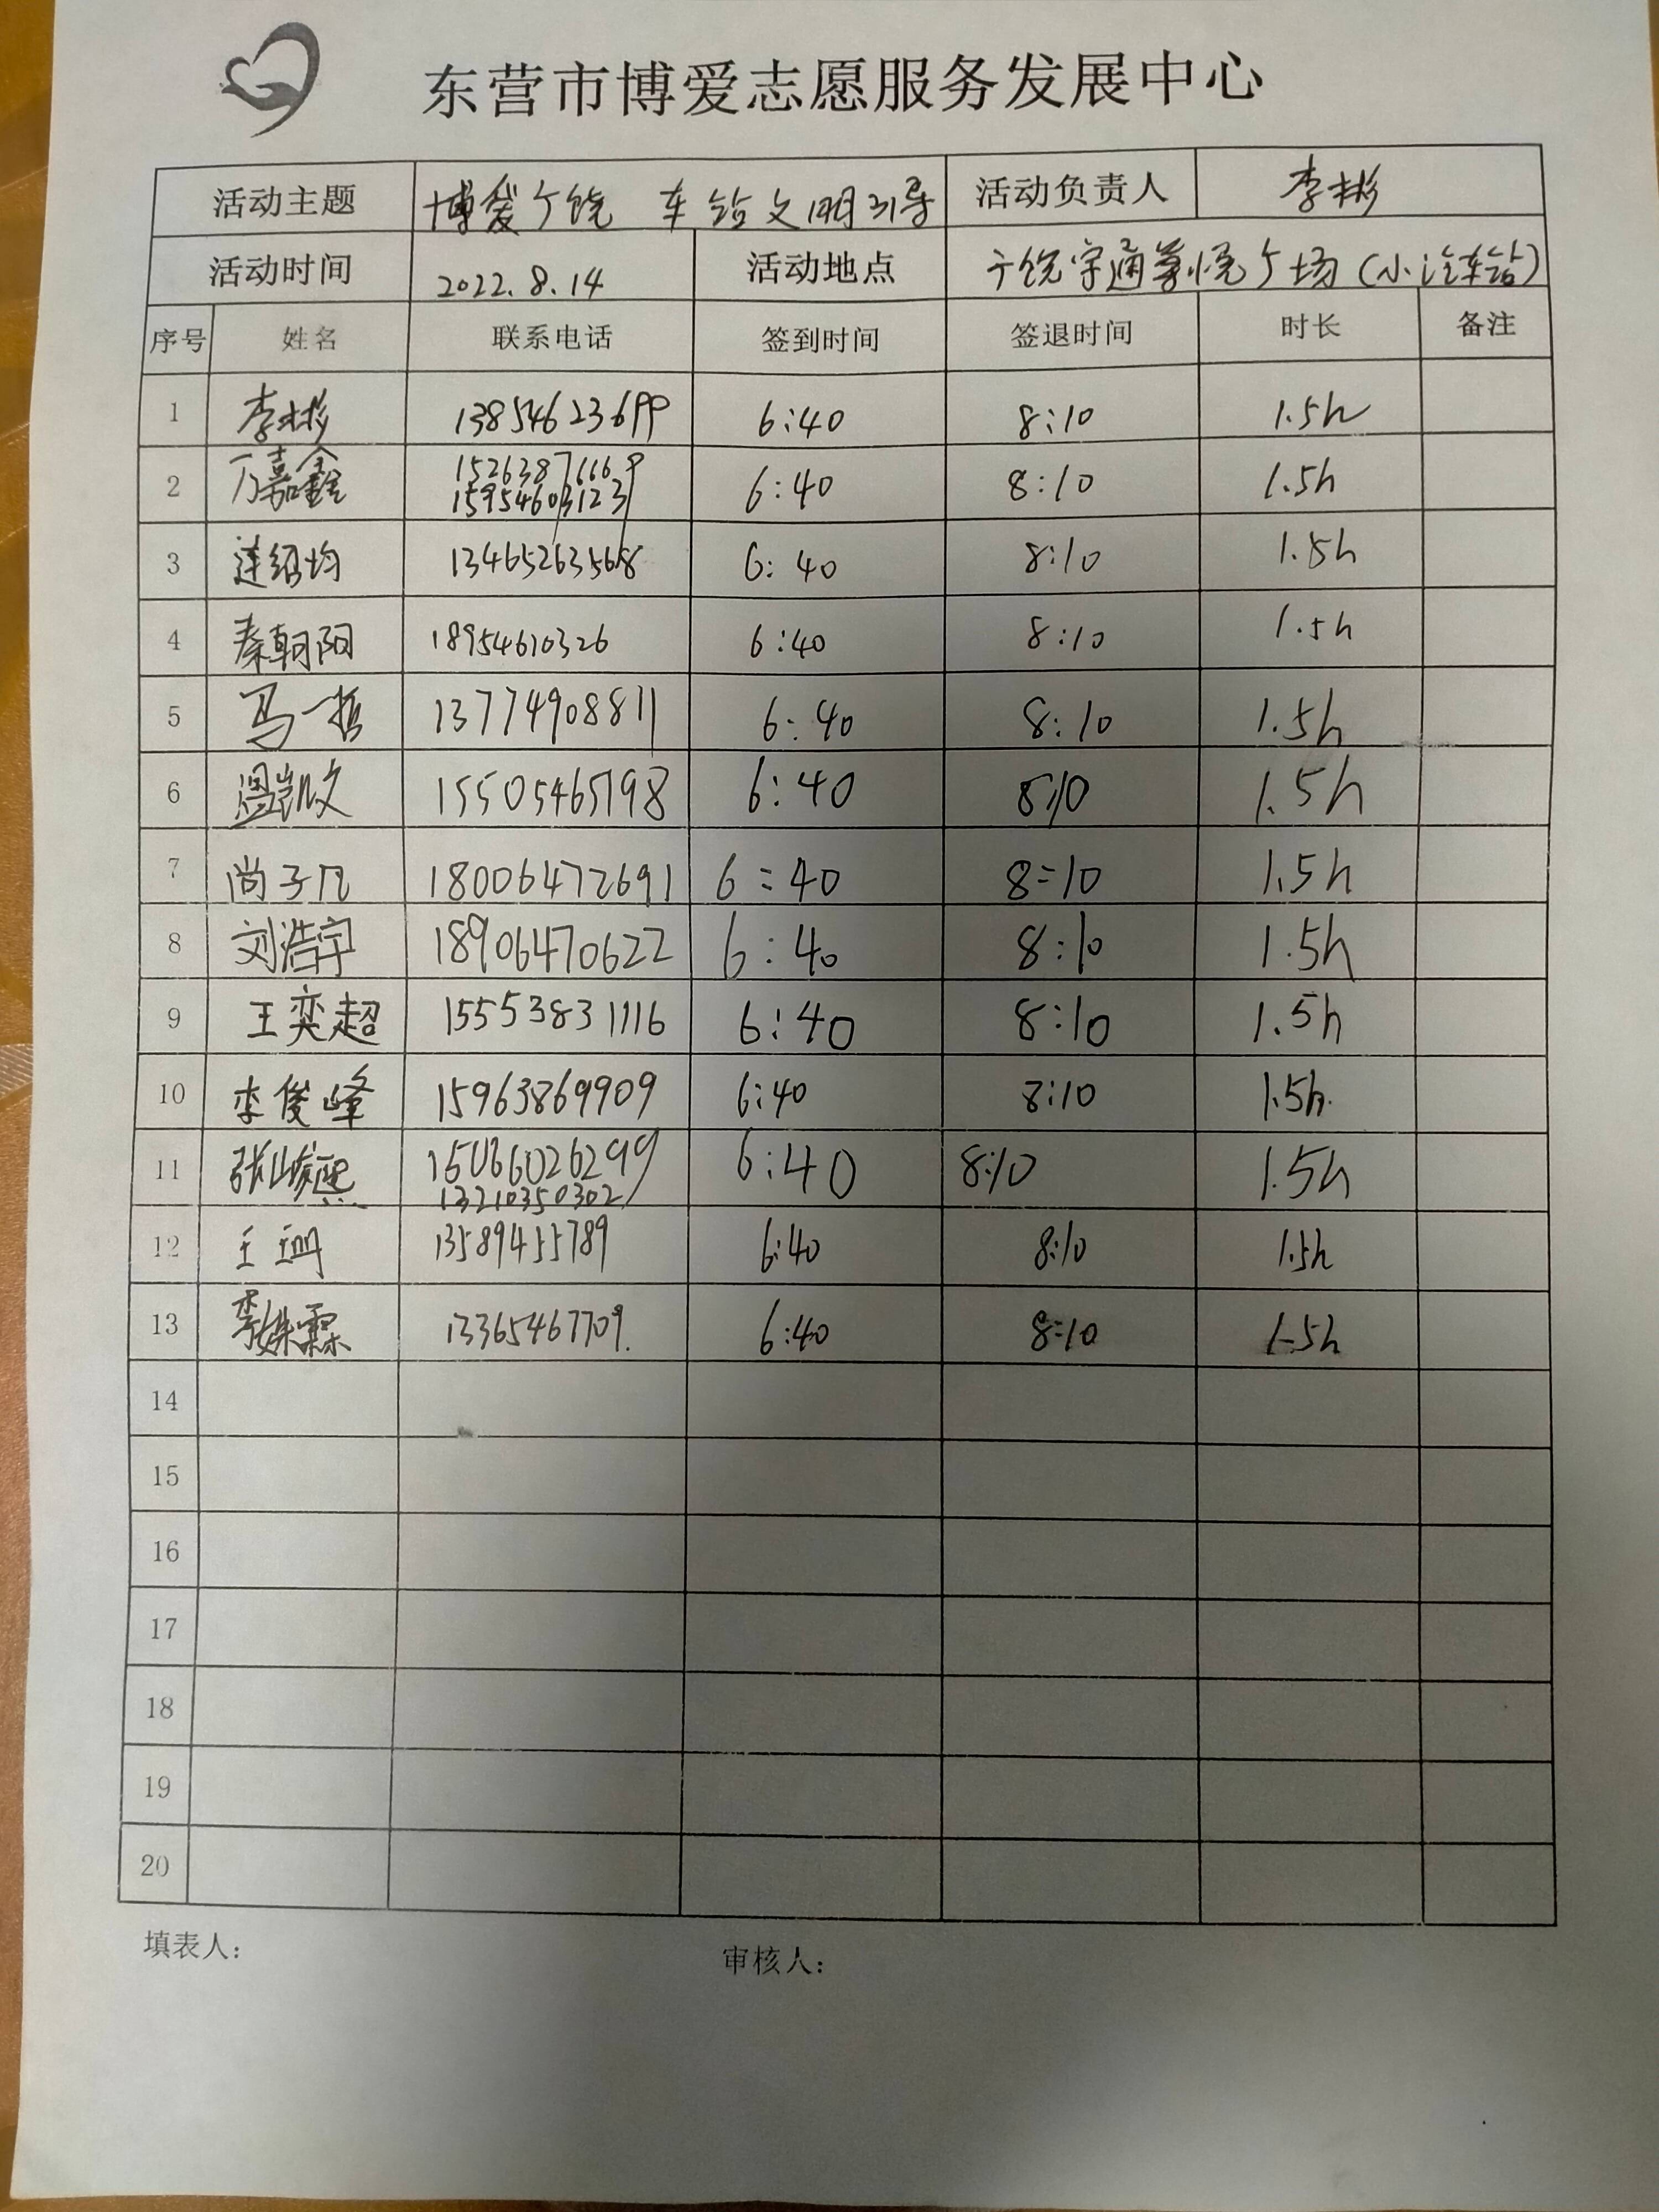 东营市博爱志愿服务发展中心
活动主题 博爱广饶 车站文明引导 活动负责人 李彬
活动时间 2022.8.14 活动地点 广饶宇通尊悦广场(小汽车站)
序号 姓名 联系电话 签到时间 签退时间 时长 备注
1 李彬 13854623699 6:40 8:10 1.5h
2 万嘉鑫 15263876669 6:40 8:10 1.5h
15954603123
3 连绍均 13465263568 6:40 8:10 1.5h
4 秦朝阳 18954610326 6:40 8:10 1.5h
5 马一哲 13774908811 6:40 8:10 1.5h
6 凯文 15505465798 6:40 8:10 1.5h
7 尚子凡 18006472691 6:40 8:10 1.5h
8 刘浩宇 18906470622 6:40 8:10 1.5h
9 王奕超 15553831116 6:40 8:10 1.5h
10 李俊峰 15963869909 6:40 8:10 1.5h.
11 张峻熙 6:40 8:10 1.5h
13210350302
12 王珊 13589455789 6:40 8:10 1.5h
13 李姝霖 13365467709. 6:40 8:10 1.5h
14
15
16
17
18
19
20
填表人: 审核人: